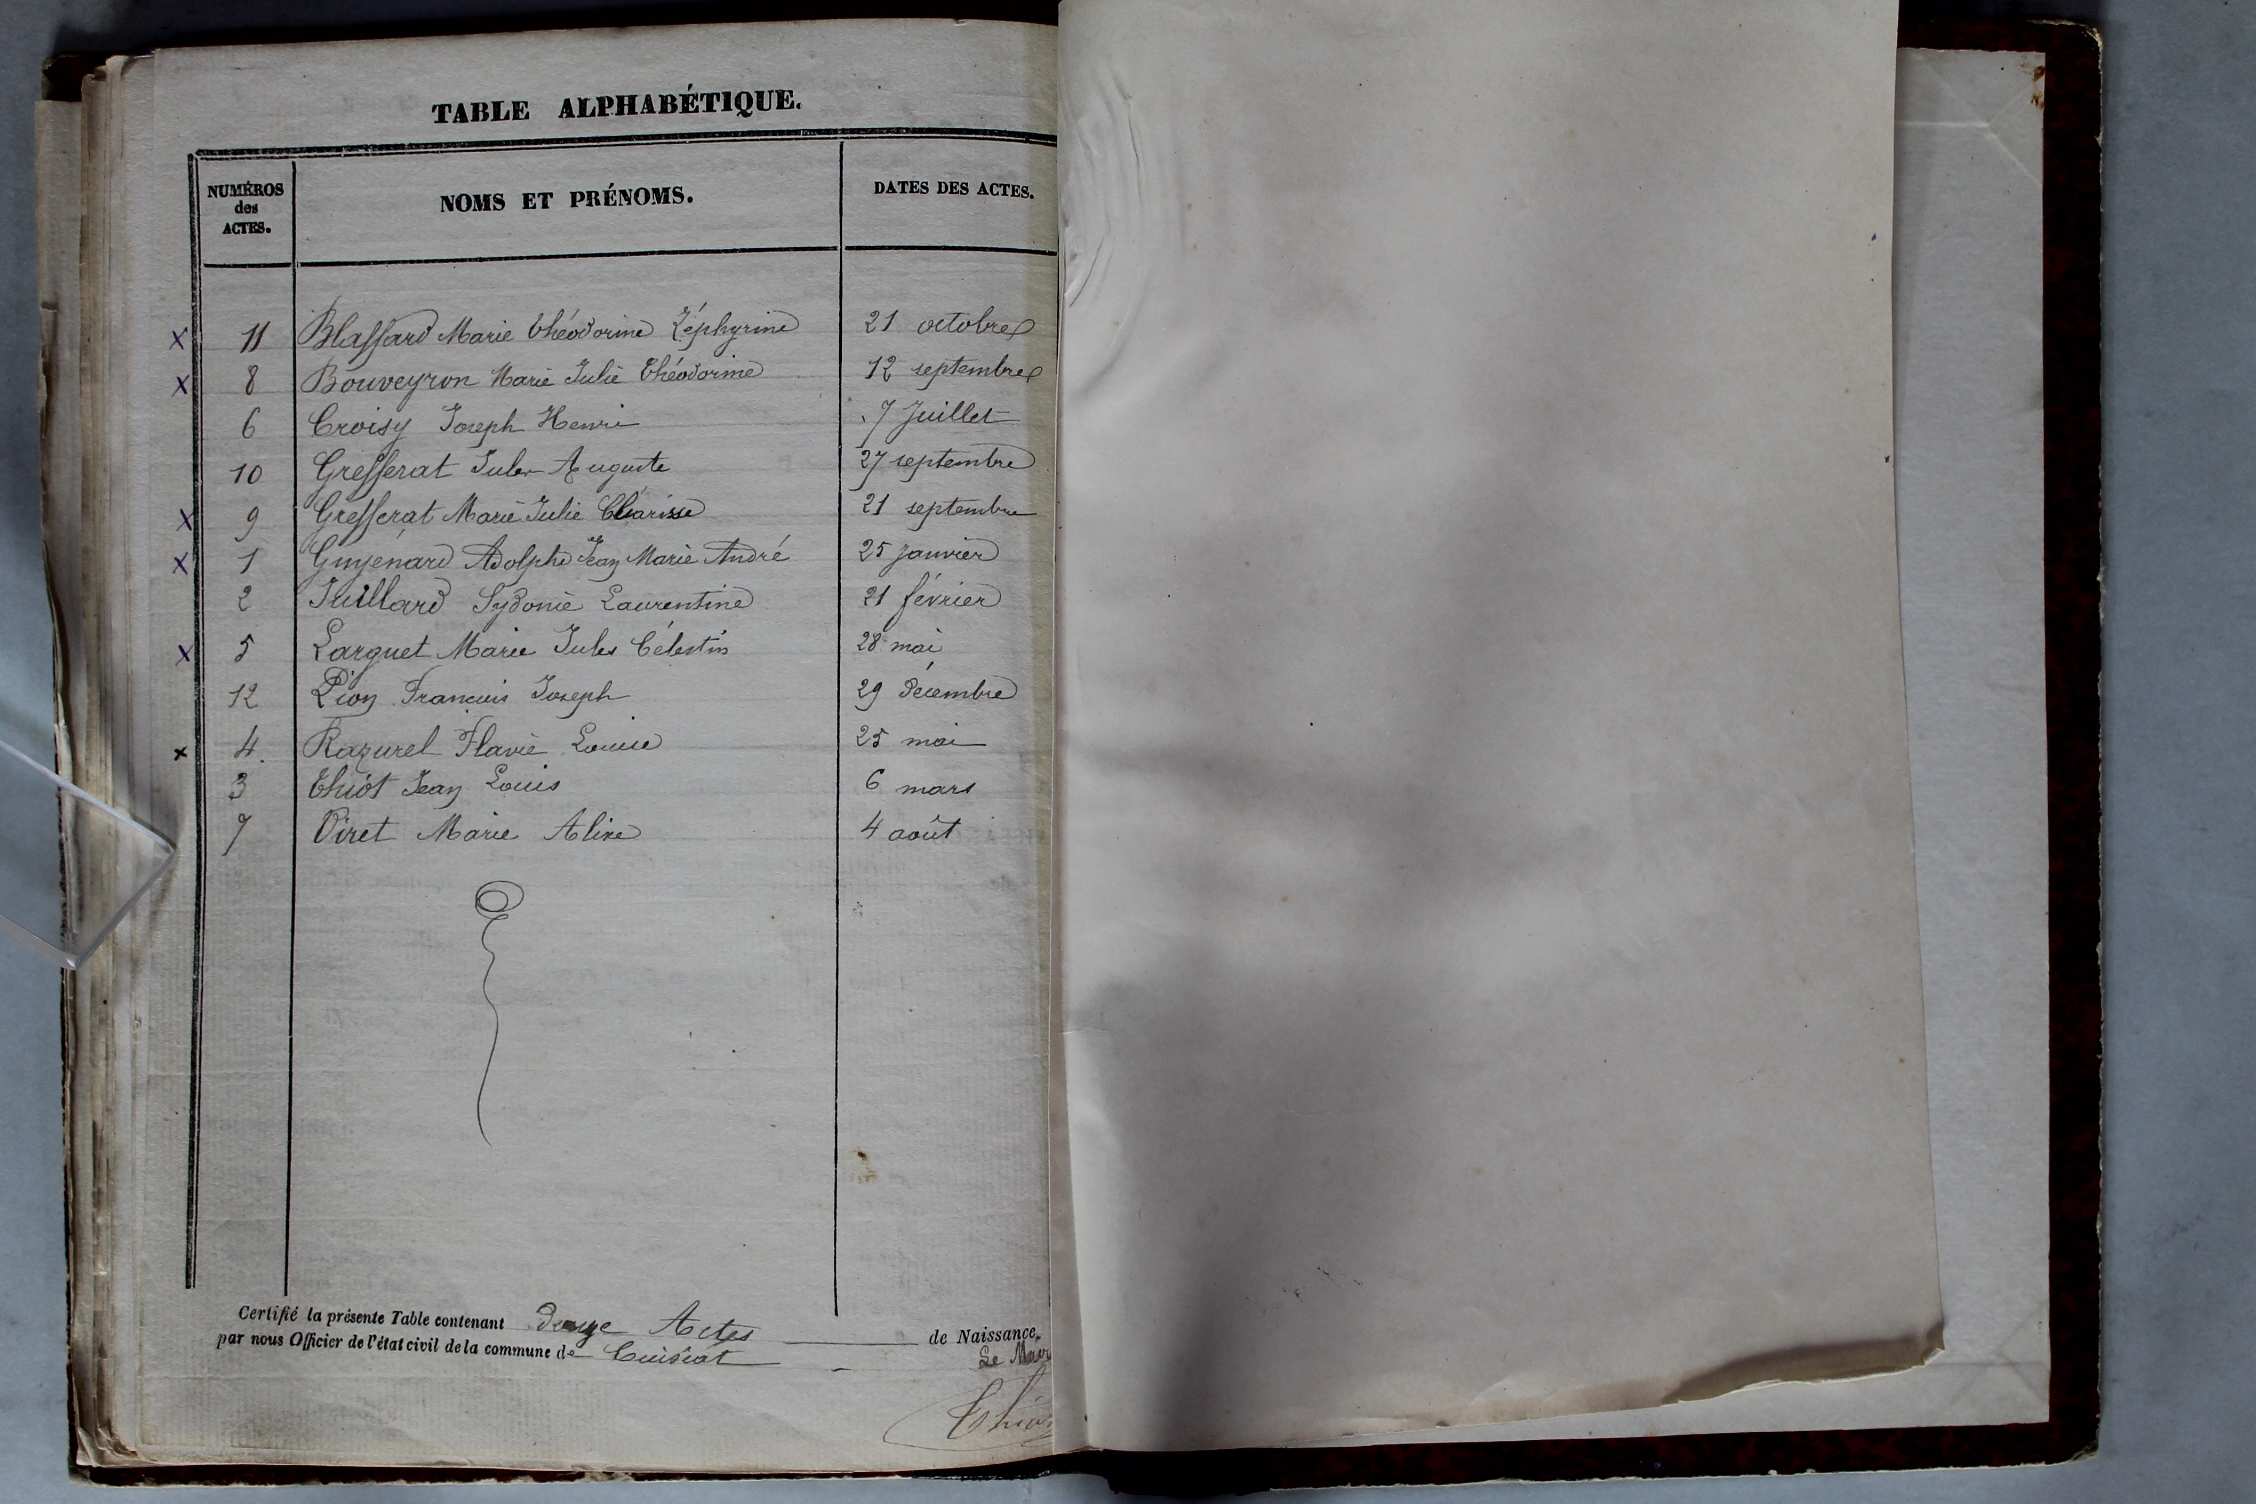 TABLE ALPHABÉTIQUE.
NUMÉROS des ACTES. NOMS ET PRÉNOMS. DATES DES ACTES.
x 11 Blassard Marie Théodorine Zéphyrine 21 octobre
x 8 Bouveyron Marie Julie Théodorine 12 septembre
6 Croisy Joseph Henri 7 Juillet
10 Gresserat Jules Auguste 27 septembre
x 9 Gresserat Marie Julie Clarisse 21 septembre
x 1 Guyénard Adolphe Jean Marie André 25 Janvier
2 Juillard Sydonie Laurentine 21 février
x 5 Larguet Marie Jules Célestin 28 mai
12 Pion François Joseph 29 décembre
x 4 Razurel Flavie Louise 25 mai
3 Thiot Jean Louis 6 mars
7 Viret Marie Aline 4 août
Certifié la présente Table contenant douze Actes de Naissance,
par nous Officier de l'état civil de la commune de Cuisiat
Le